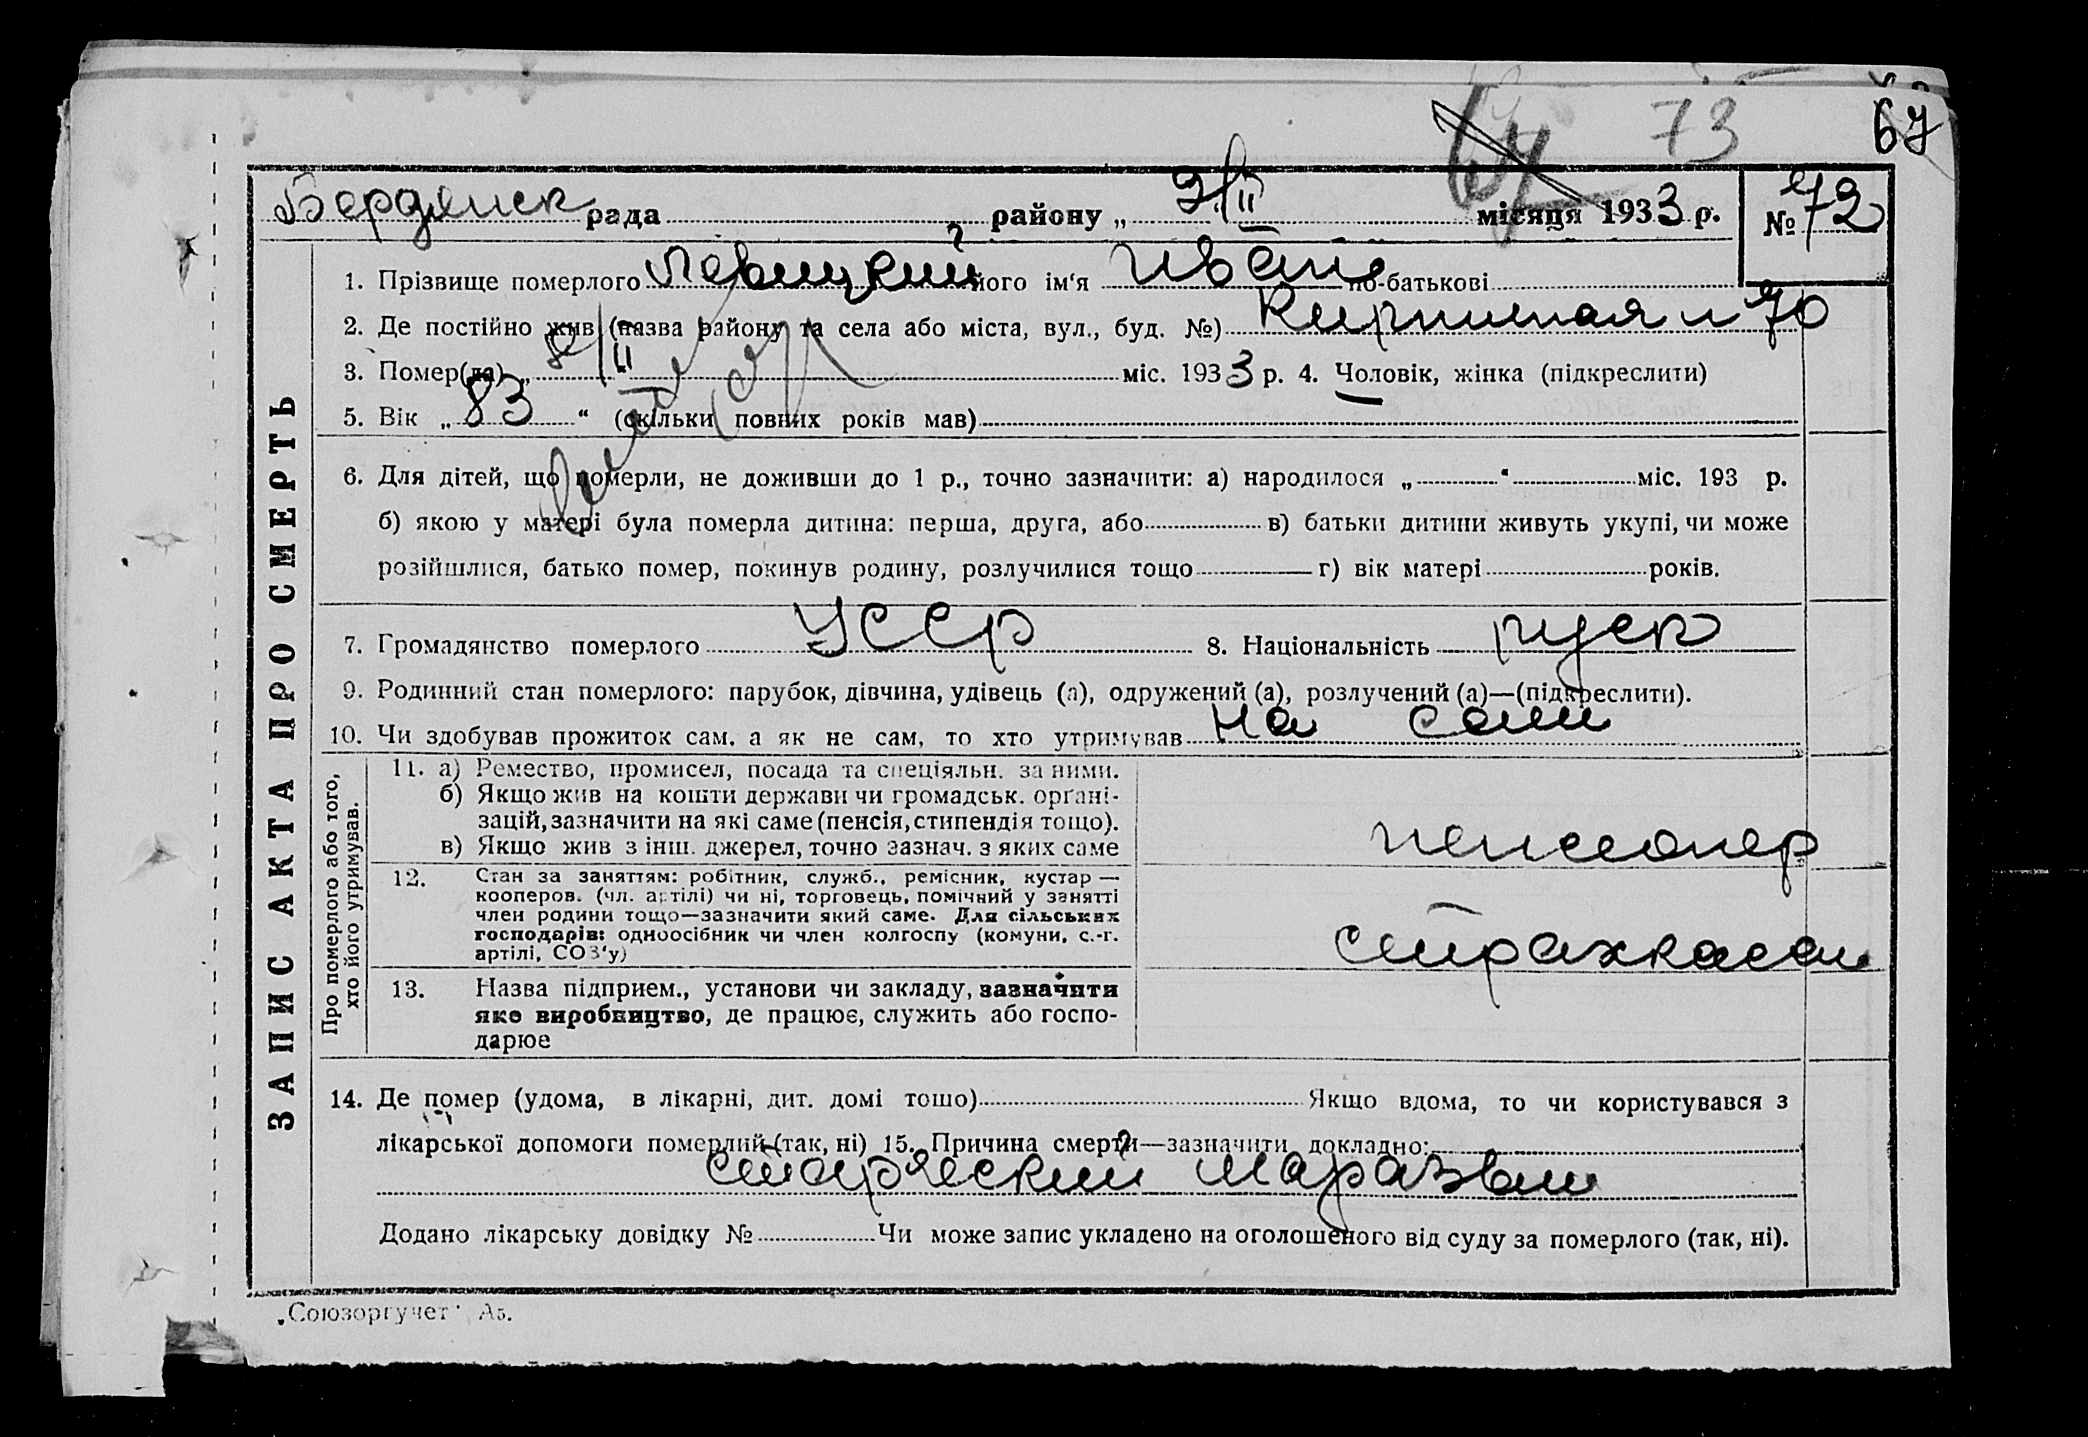 73 67
Бердянск рада району „ 9/II місяця 1933 р. № 72
1. Прізвище померлого Левицкий його ім‘я Иван по-батькові
2. Де постійно жив (назва району та села або міста, вул., буд. №) Кирпичная 70
3. Помер(ла) „ 8/II міс. 1933 р. 4. Чоловік, жінка (підкреслити)
5. Вік „ 83 “ (скільки повних років мав)
6. Для дітей, що померли, не доживши до 1 р., точно зазначити: а) народилося „ “ міс. 193 р.
б) якою у матері була померла дитина: перша, друга, або в) батьки дитини живуть укупі, чи може
розійшлися, батько помер, покинув родину, розлучилися тощо г) вік матері років.
7. Громадянство померлого УССР 8. Національність руск
9. Родинний стан померлого: парубок, дівчина, удівець (а), одружений (а), розлучений (а)—(підкреслити).
10. Чи здобував прожиток сам, а як не сам, то хто утримував
ЗАПИС АКТА ПРО СМЕРТЬ
Про померлого або того,
хто його утримував.
11. а) Ремество, промисел, посада та спеціяльн. за ними.
б) Якщо жив на кошти держави чи громадськ. органі-
зацій, зазначити на які саме (пенсія, стипендія тощо).
в) Якщо жив з інш. джерел, точно зазнач. з яких саме
пенсионер
12. Стан за заняттям: робітник, служб., ремісник, кустар —
кооперов. (чл. артілі) чи ні, торговець, помічний у занятті
член родини тощо—зазначити який саме. Для сільських
господарів: одноосібник чи член колгоспу (комуни, с.-г.
артілі, СОЗ‘у)
страхкассы
13. Назва підприєм., установи чи закладу, зазначити
яке виробництво, де працює, служить або госпо-
дарює
14. Де помер (удома, в лікарні, дит. домі тощо) Якщо вдома, то чи користувався з
лікарської допомоги померлий (так, ні) 15. Причина смерти—зазначити докладно:
старческий маразм
Додано лікарську довідку № Чи може запис укладено на оголошеного від суду за померлого (так, ні).
„Союзоргучет“ А5.